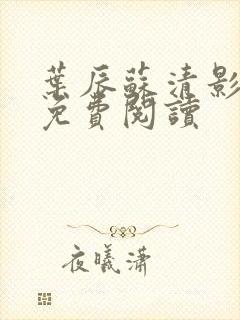 葉辰蘇清影
免費閱讀
夜曦瀟